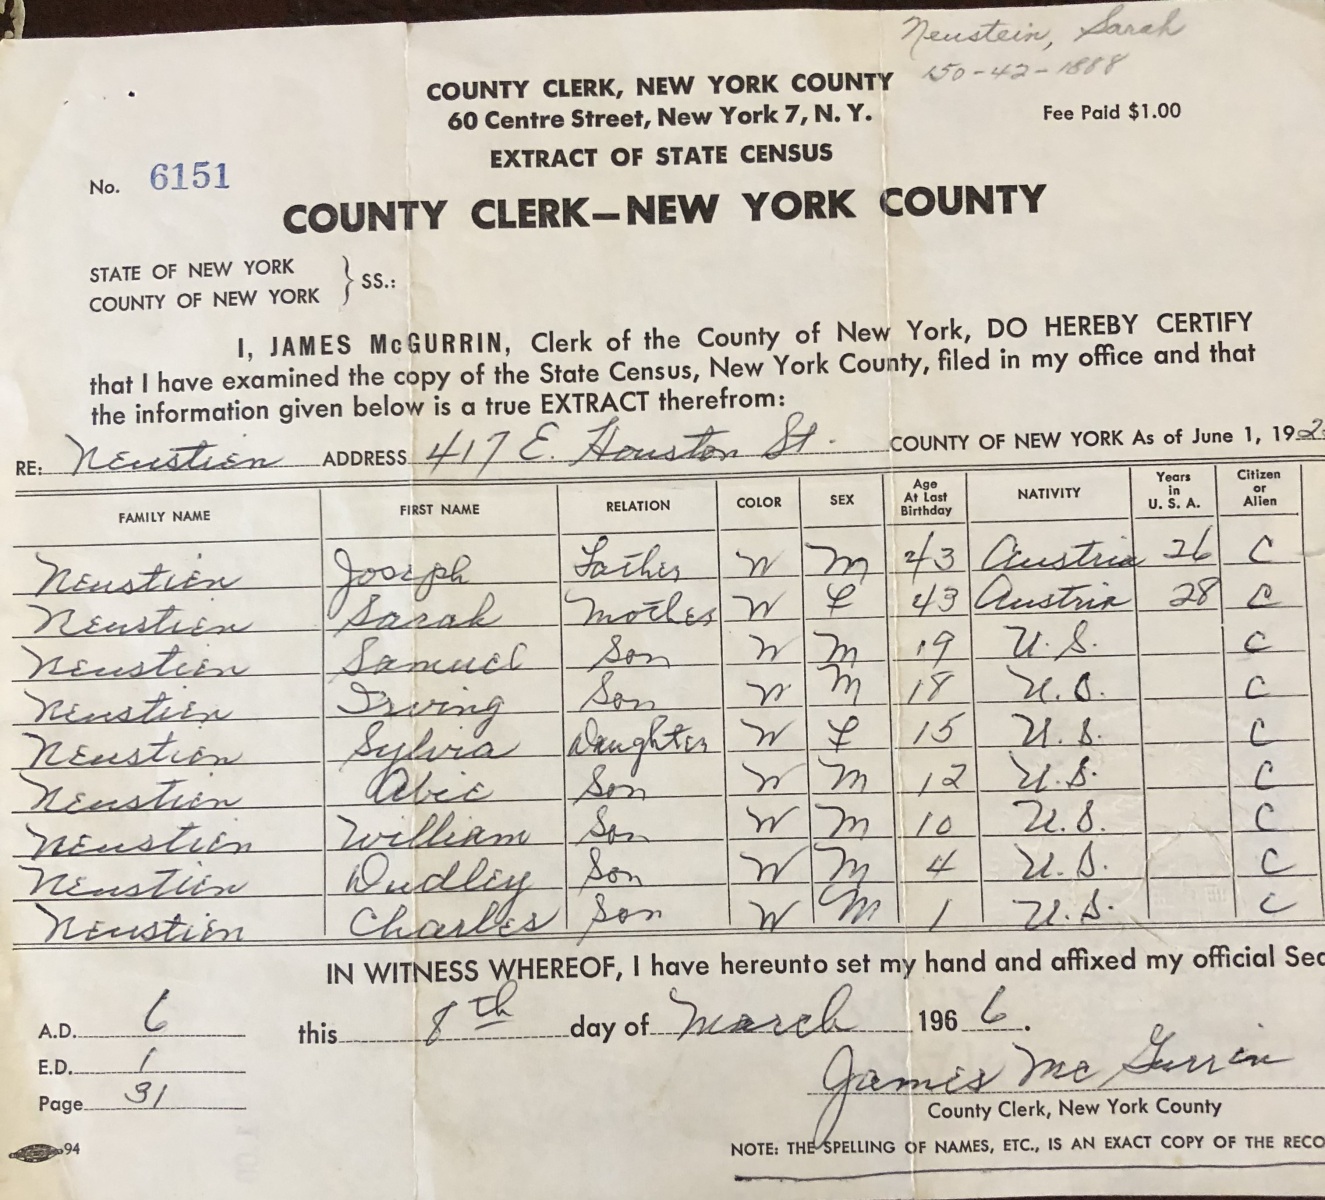 Neustein, Sarah
150-42-1888
COUNTY CLERK, NEW YORK COUNTY
60 Centre Street, New York 7, N. Y.
Fee Paid $1.00
EXTRACT OF STATE CENSUS
No. 6151
COUNTY CLERK—NEW YORK COUNTY
STATE OF NEW YORK
COUNTY OF NEW YORK } SS.:
I, JAMES McGURRIN, Clerk of the County of New York, DO HEREBY CERTIFY
that I have examined the copy of the State Census, New York County, filed in my office and that
the information given below is a true EXTRACT therefrom:
RE: Neustien ADDRESS 417 E. Houston St. COUNTY OF NEW YORK As of June 1, 192
FAMILY NAME FIRST NAME RELATION COLOR SEX Age At Last Birthday NATIVITY Years in U. S. A. Citizen or Alien
Neustien Joseph Father W M 43 Austria 26 C
Neustien Sarah Mother W F 43 Austria 28 C
Neustien Samuel Son W M 19 U. S. C
Neustien Irving Son W M 18 U. S. C
Neustien Sylvia Daughter W F 15 U. S. C
Neustien Abie Son W M 12 U. S. C
Neustien William Son W M 10 U. S. C
Neustien Dudley Son W M 4 U. S. C
Neustien Charles Son W M 1 U. S. C
IN WITNESS WHEREOF, I have hereunto set my hand and affixed my official Sea
A.D. 6 this 8th day of March 1966.
E.D. 1
James McGurrin
Page 31
County Clerk, New York County
94
NOTE: THE SPELLING OF NAMES, ETC., IS AN EXACT COPY OF THE RECO